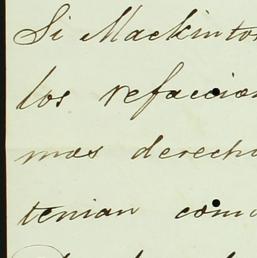 Si Mackintos
los refaccion
mas derecho
tenian como